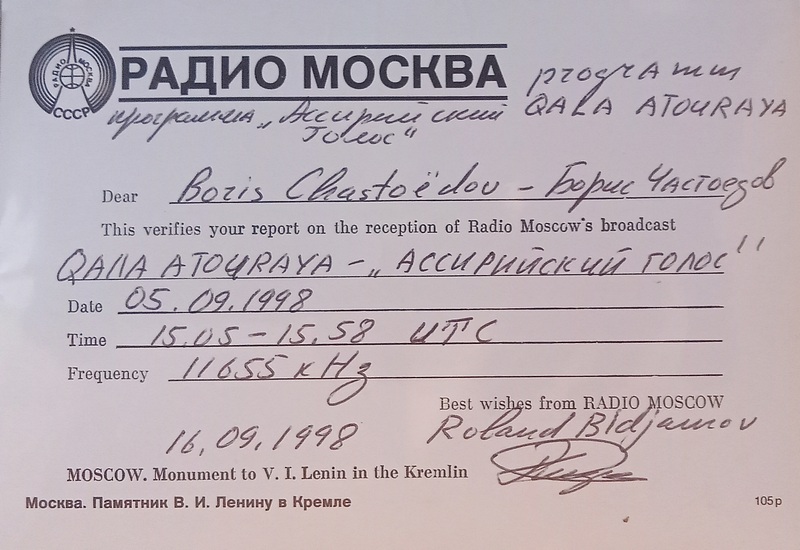 РАДИО МОСКВА
РАДИО МОСКВА СССР
programm
программа „Ассирийский QALA ATOURAYA
Голос“
Dear Boris Chastoëdov – Борис Частоедов
This verifies your report on the reception of Radio Moscow's broadcast
QALA ATOURAYA – „АССИРИЙСКИЙ ГОЛОС“
Date 05.09.1998
Time 15.05 – 15.58 UTC
Frequency 11655 kHz
Best wishes from RADIO MOSCOW
16.09.1998 Roland Bidjamov
MOSCOW. Monument to V. I. Lenin in the Kremlin
Москва. Памятник В. И. Ленину в Кремле 105р